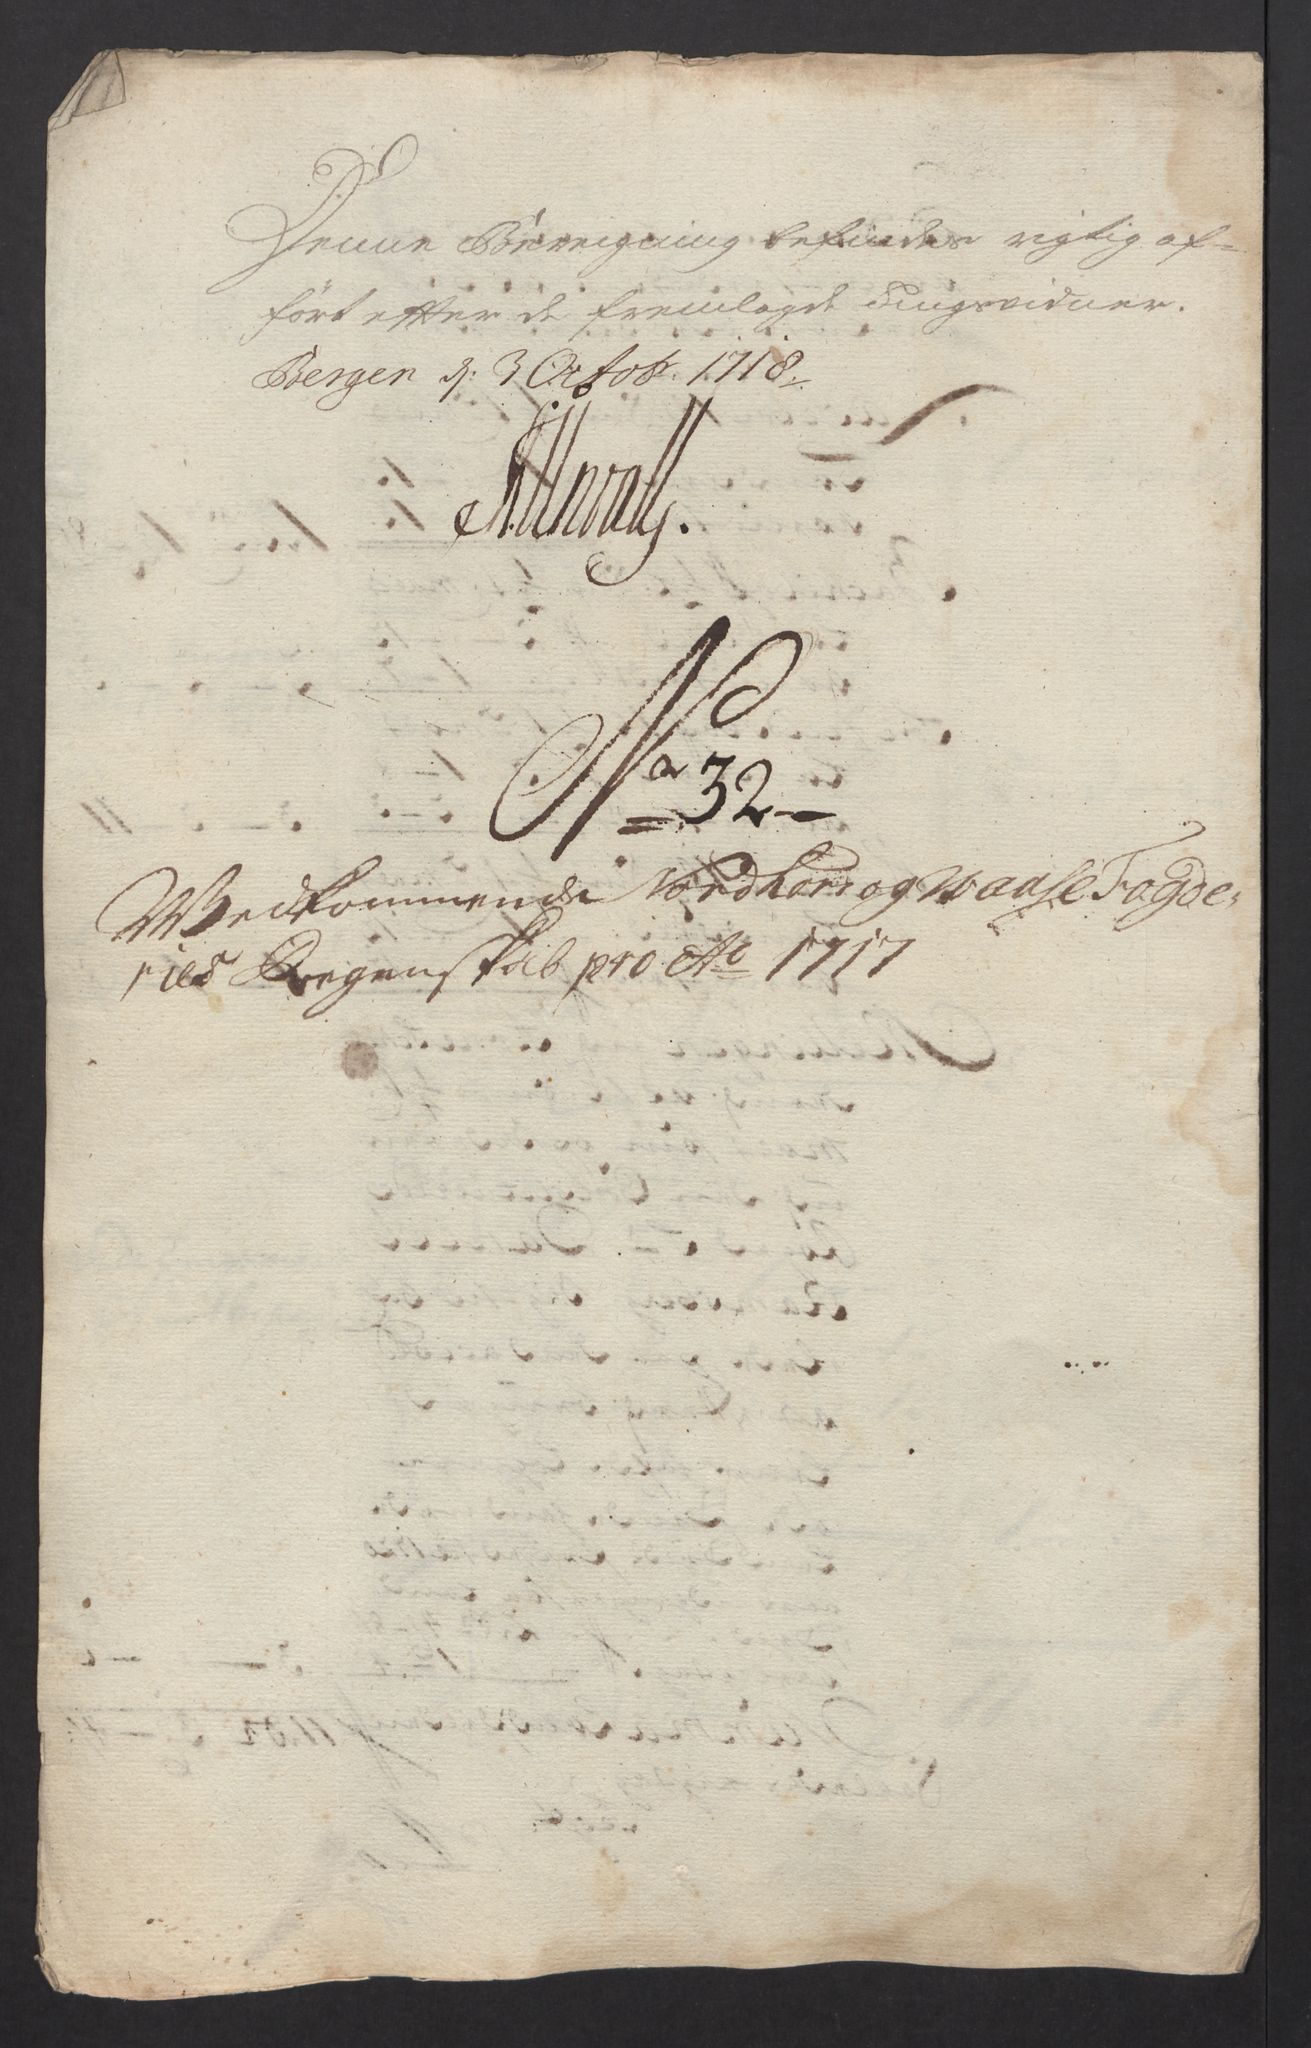 Denne Beregning befindes rigtig af-
ført efter de fremlagde tingsvidner.
Bergen d: 3 Octob: 1718,
No 32
Wedkommende Nordhors og Waasse Fogde-
ries Regenskab pro Ao 1717